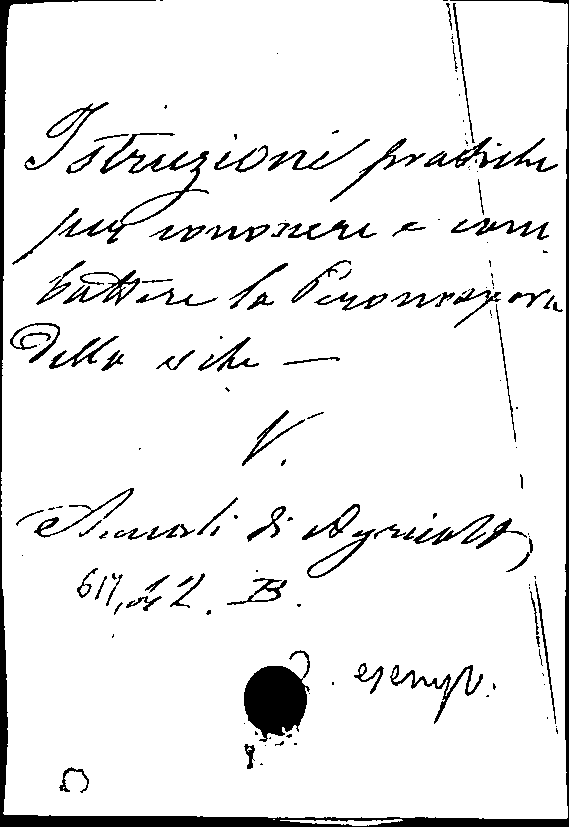 Istruzioni pratiche
per conoscere e com
battere la Peronospora
della vite —
V.
Annali di Agricolt.
B.
2. esemp.